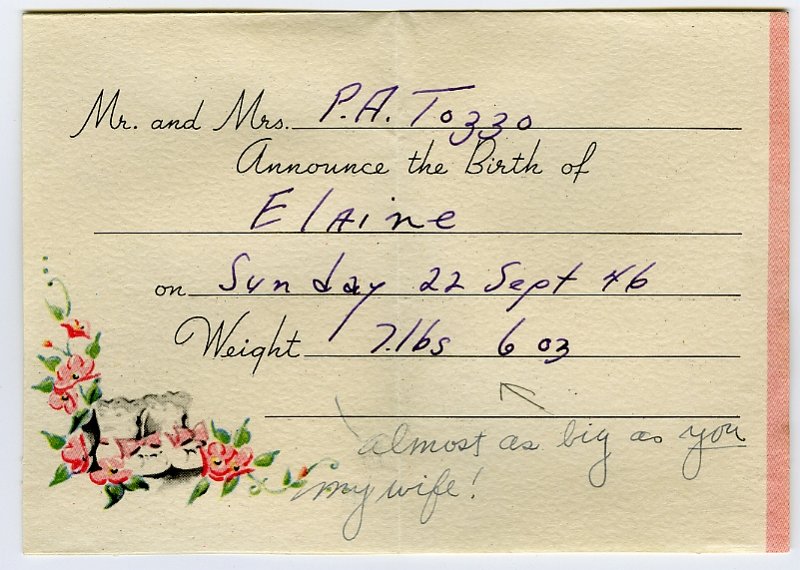 Mr. and Mrs. P.A. Tozzo
Announce the Birth of
Elaine
on Sunday 22 Sept 46
Weight 7.lbs 6 oz
almost as big as you
my wife!